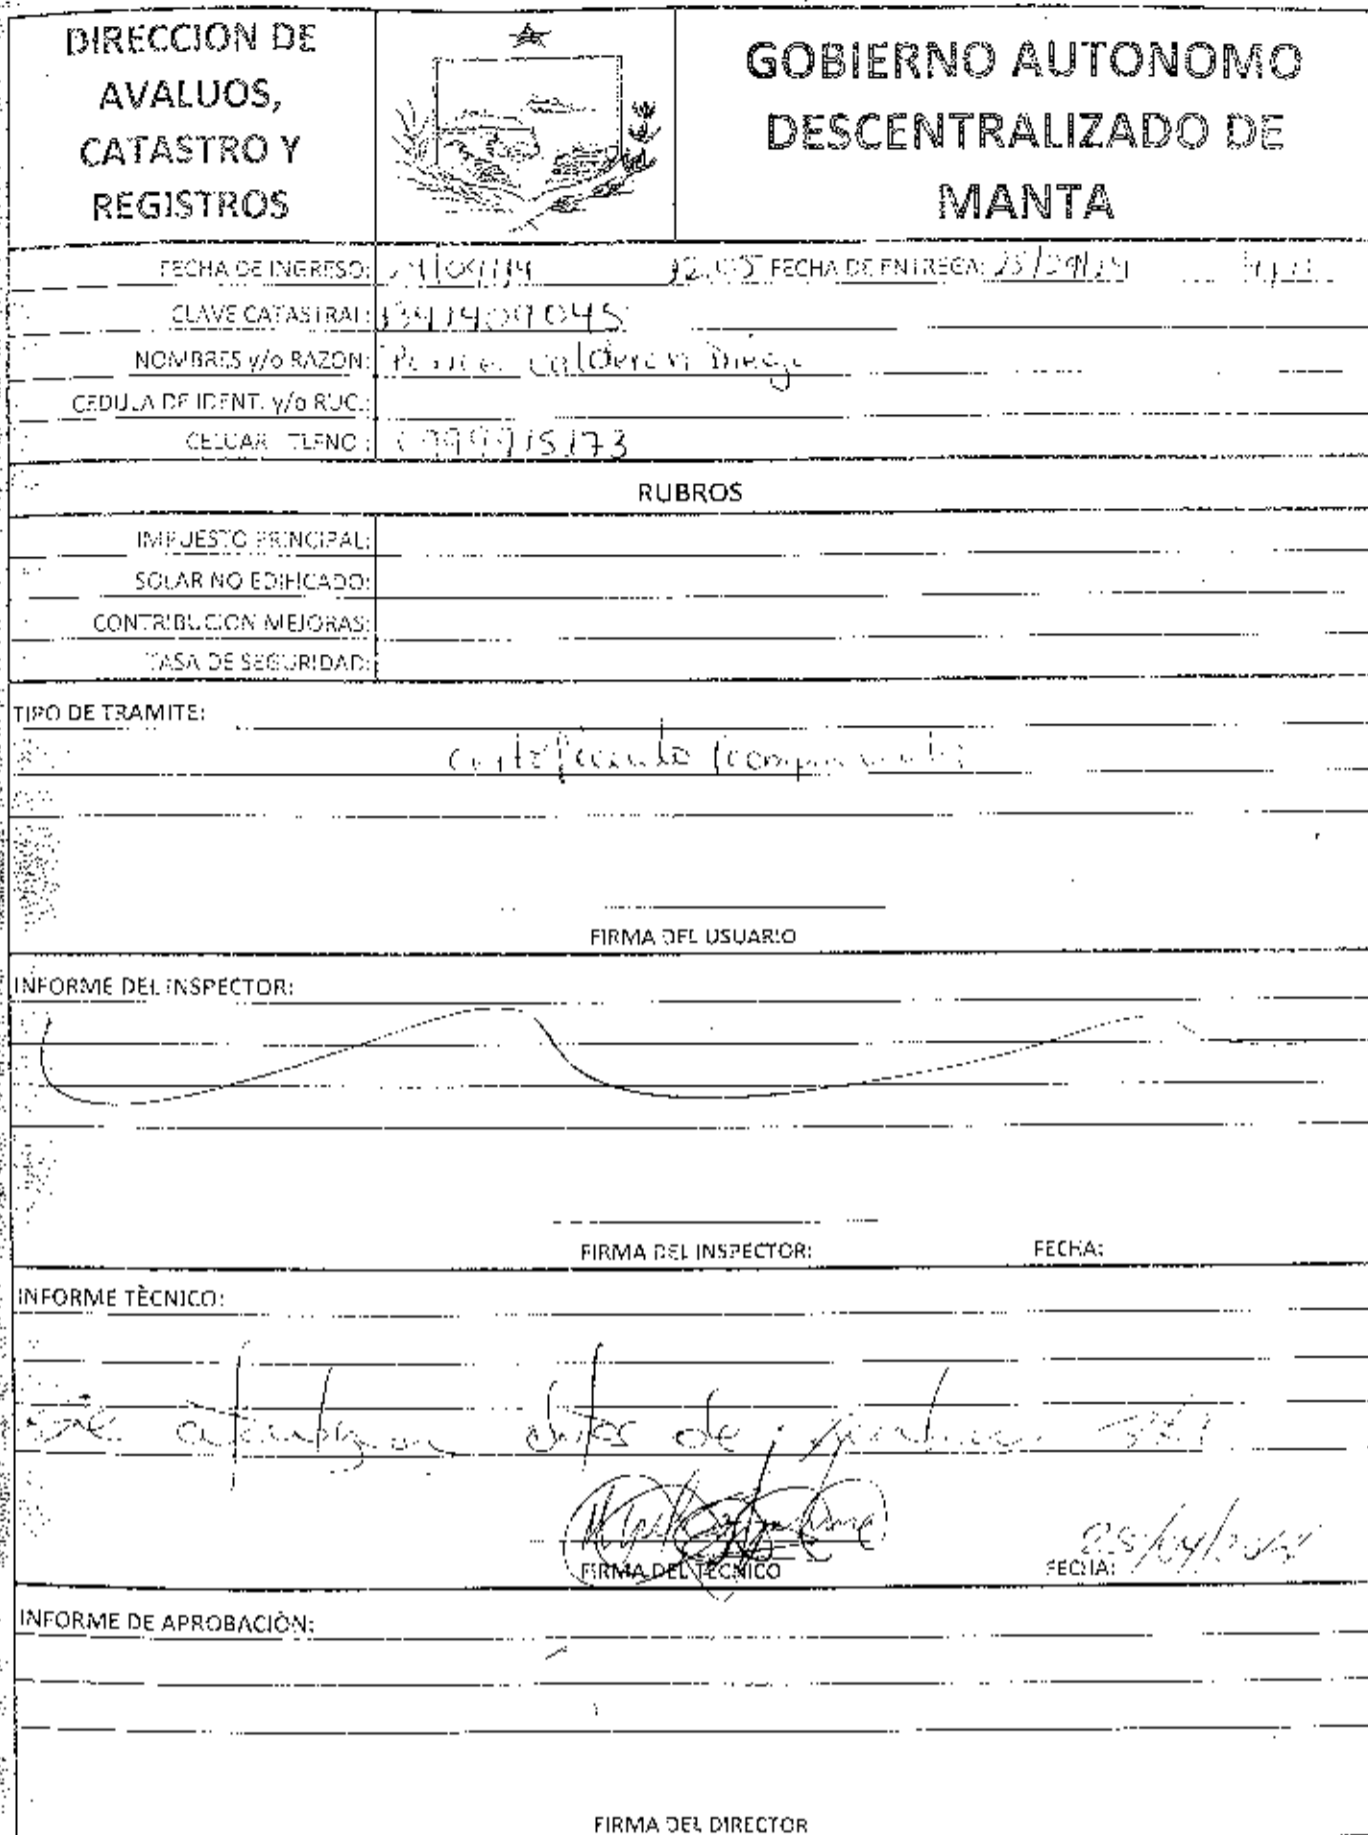 DIRECCION DE
AVALUOS,
CATASTRO Y
REGISTROS
GOBIERNO AUTONOMO
DESCENTRALIZADO DE
MANTA
FECHA DE INGRESO: FECHA DE ENTREGA:
CLAVE CATASTRAL: 1341409045
NOMBRES y/o RAZON: Ponce Calderon Diego
CEDULA DE IDENT. y/o RUC.:
CELUAR - TLFNO: 0999915173
RUBROS
IMPUESTO PRINCIPAL:
SOLAR NO EDIFICADO:
CONTRIBUCION MEJORAS:
TASA DE SEGURIDAD:
TIPO DE TRAMITE:
Certificado
FIRMA DEL USUARIO
INFORME DEL INSPECTOR:
FIRMA DEL INSPECTOR: FECHA:
INFORME TÈCNICO:
de
FIRMA DEL TECNICO FECHA: 25/04/2014
INFORME DE APROBACIÒN:
FIRMA DEL DIRECTOR